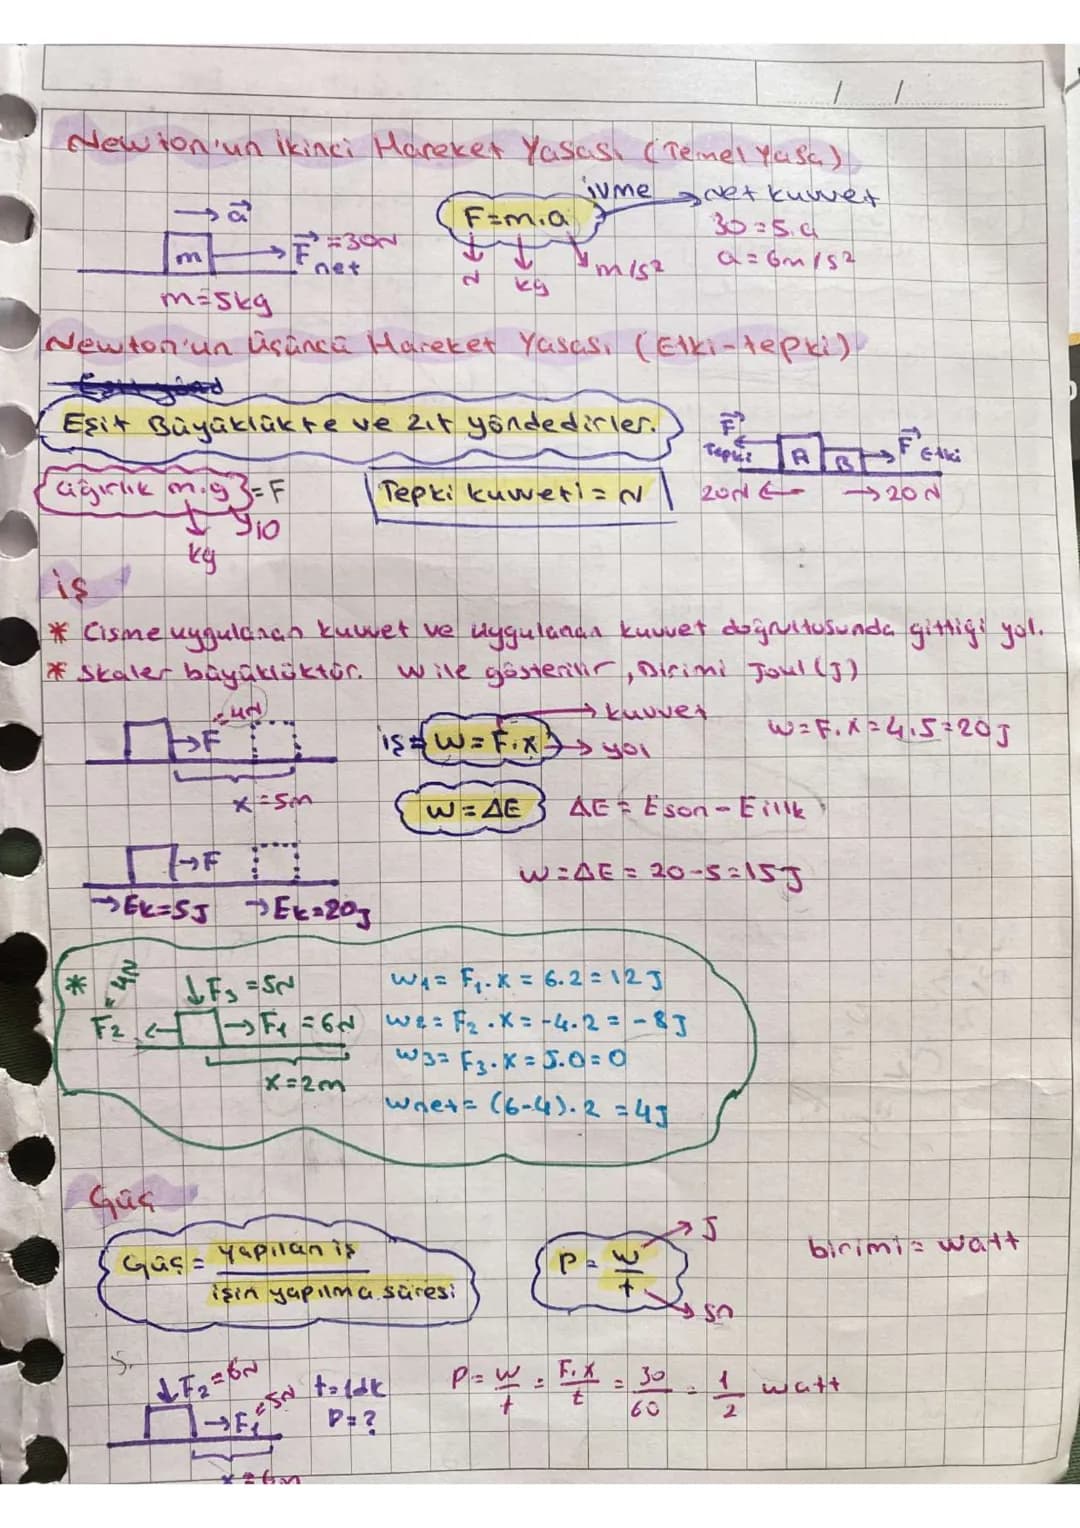 / /
Newton'un İkinci Hareket Yasası (Temel Yasa)
→ a
m
F net = 30N
m=5kg
F=m.a
ivme
N
kg
m/s²
net kuvvet
30=5.a
a=6m/s²
Newton'un Üçüncü Hareket Yasası (Etki-tepki)
Eşit Büyüklükte ve zıt yöndedirler.
F Tepki
A B
F Etki
20N ← → 20N
ağırlık m.g = F
kg
10
Tepki kuvveti = N
iş
* Cisme uygulanan kuvvet ve uygulanan kuvvet doğrultusunda gittiği yol.
* Skaler büyüklüktür. W ile gösterilir, Birimi Joul (J)
=4N
→F
x=5m
iş = W=F.x
→ kuvvet
→ yol
W=F.x=4.5=20J
W=ΔE ΔE=Eson-Eilk
→F
→Ek=5J →Ek=20J
W=ΔE=20-5=15J
*
=4N
F2 ←
↓F3=5N
→F1=6N
x=2m
W1= F1.x = 6.2=12J
W2= F2.x=-4.2=-8J
W3= F3.x=5.0=0
Wnet= (6-4).2=4J
Güç
Güç = yapılan iş / işin yapılma süresi
P = W / t
→ J
→ sn
birimi= watt
↓F2=6N
→F1=5N
x=6m
t=1dk
P=?
P= W/t = F.x/t = 30/60 = 1/2 watt